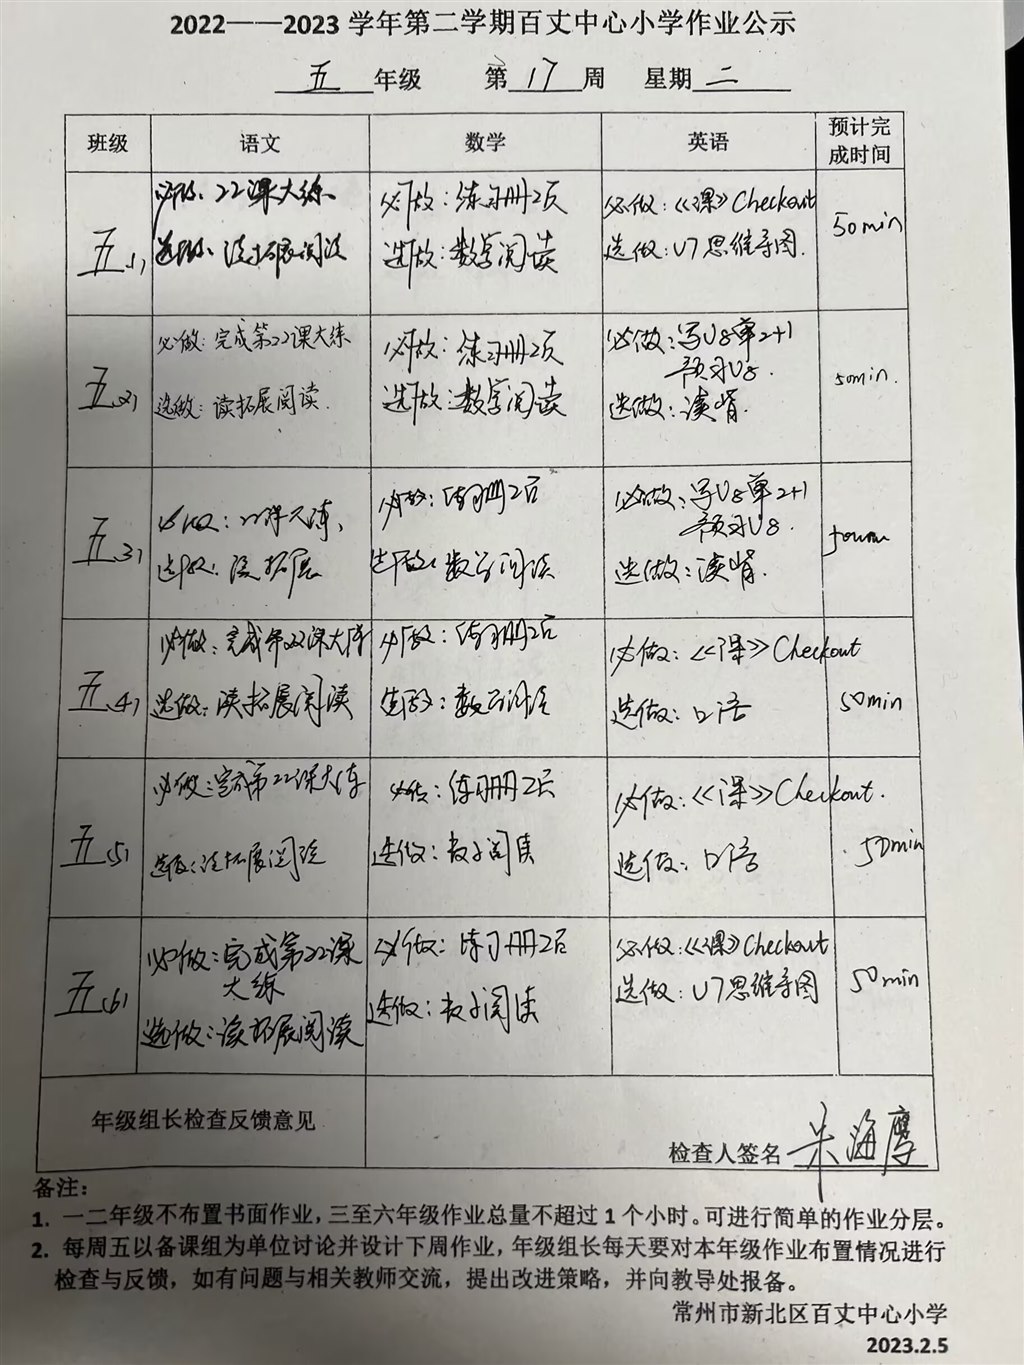 2022——2023 学年第二学期百丈中心小学作业公示
五 年级 第 17 周 星期 二
班级 语文 数学 英语 预计完成时间
五(1)
必做：22课大练
选做：读拓展阅读
必做：练习册2页
选做：数学阅读
必做：《课》Checkout
选做：U7思维导图.
50min
五(2)
必做：完成第22课大练
选做：读拓展阅读.
必做：练习册2页
选做：数学阅读
必做：写U8单2+1
预习U8.
选做：读背.
50min.
五(3)
必做：22课大练，
选做：读拓展
必做：练习册2页
选做：数学阅读
必做：写U8单2+1
预习U8.
选做：读背.
50min
五(4)
必做：完成第22课大练
选做：读拓展阅读
必做：练习册2页
选做：数学阅读
必做：《课》Checkout
选做：口语
50min
五(5)
必做：完成第22课大练
选做：读拓展阅读
必做：练习册2页
选做：数学阅读
必做：《课》Checkout.
选做：口语
50min
五(6)
必做：完成第22课
大练
选做：读拓展阅读
必做：练习册2页
选做：数学阅读
必做：《课》Checkout
选做：U7思维导图
50min
年级组长检查反馈意见
检查人签名 朱海
备注：
1. 一二年级不布置书面作业，三至六年级作业总量不超过 1 个小时。可进行简单的作业分层。
2. 每周五以备课组为单位讨论并设计下周作业，年级组长每天要对本年级作业布置情况进行
检查与反馈，如有问题与相关教师交流，提出改进策略，并向教导处报备。
常州市新北区百丈中心小学
2023.2.5